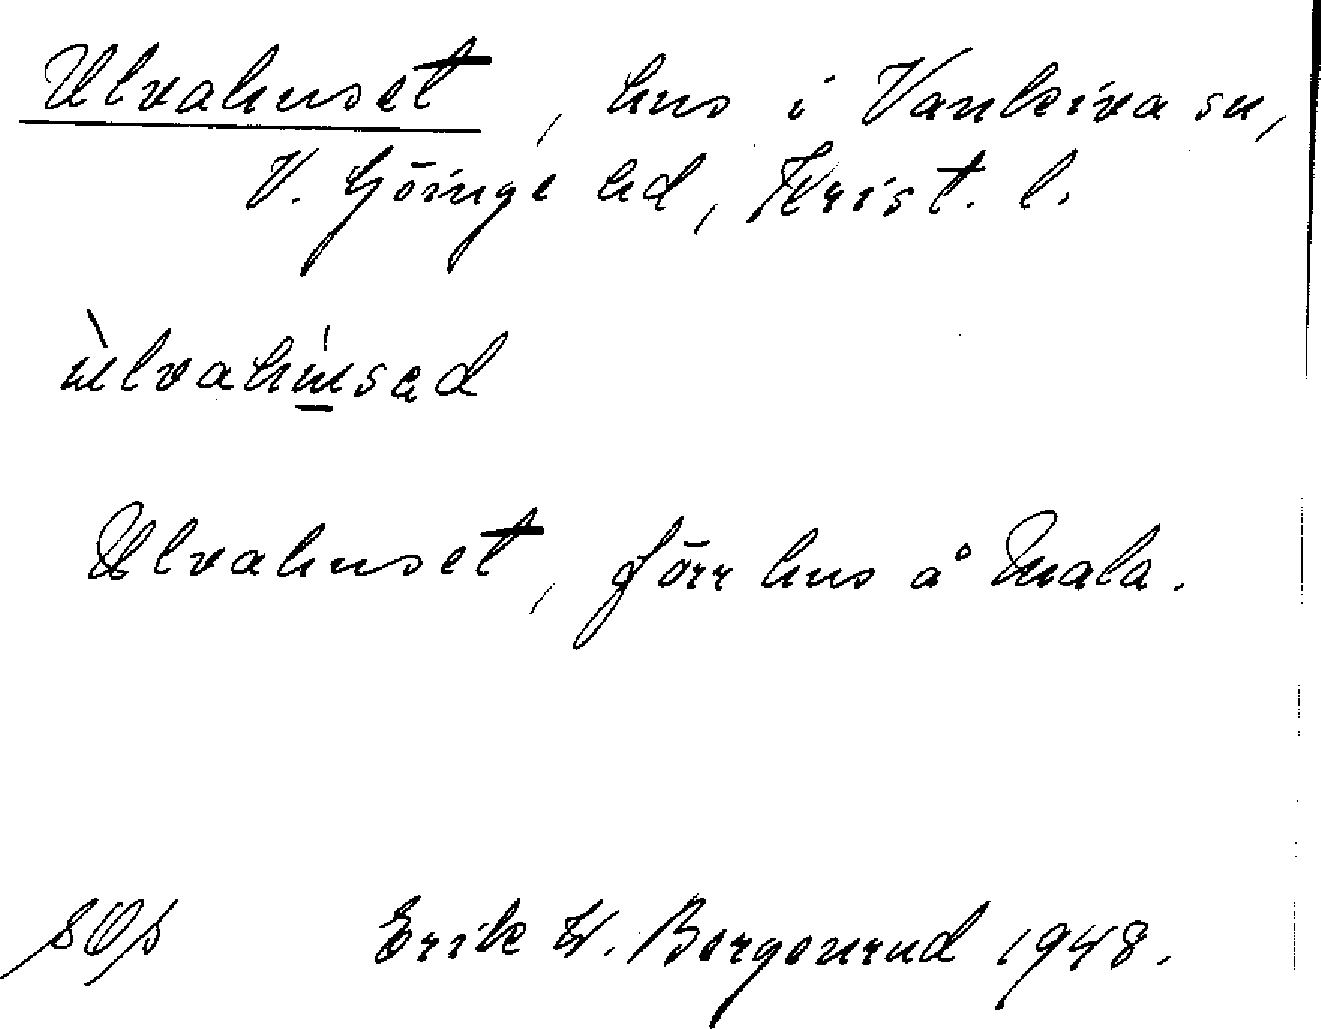 Ulvahuset, hus i Vankiva sn,
V. Göinge hd, Krist. l.
ùlvahúsad
Ulvahuset, förr hus å Mala.
Erik W. 1948.